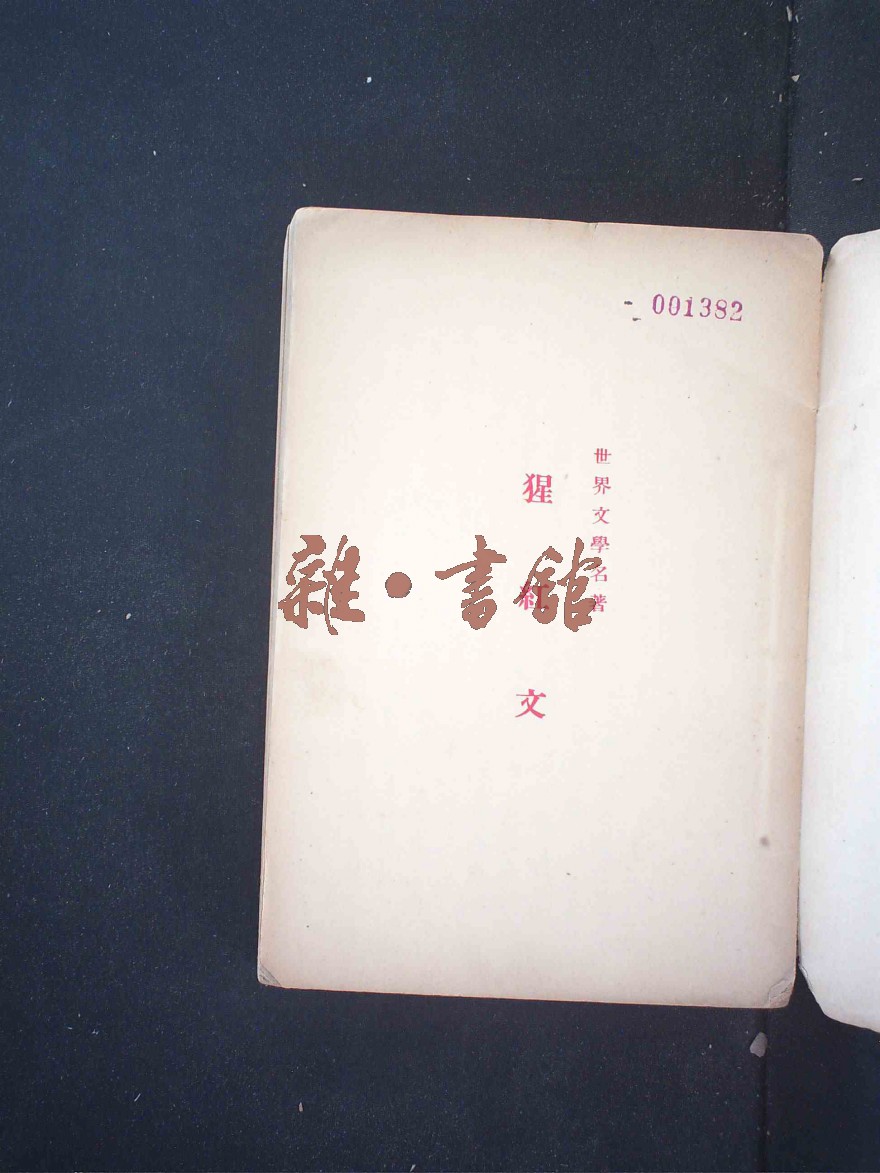 001382
世界文學名著
猩紅文
雜·書館